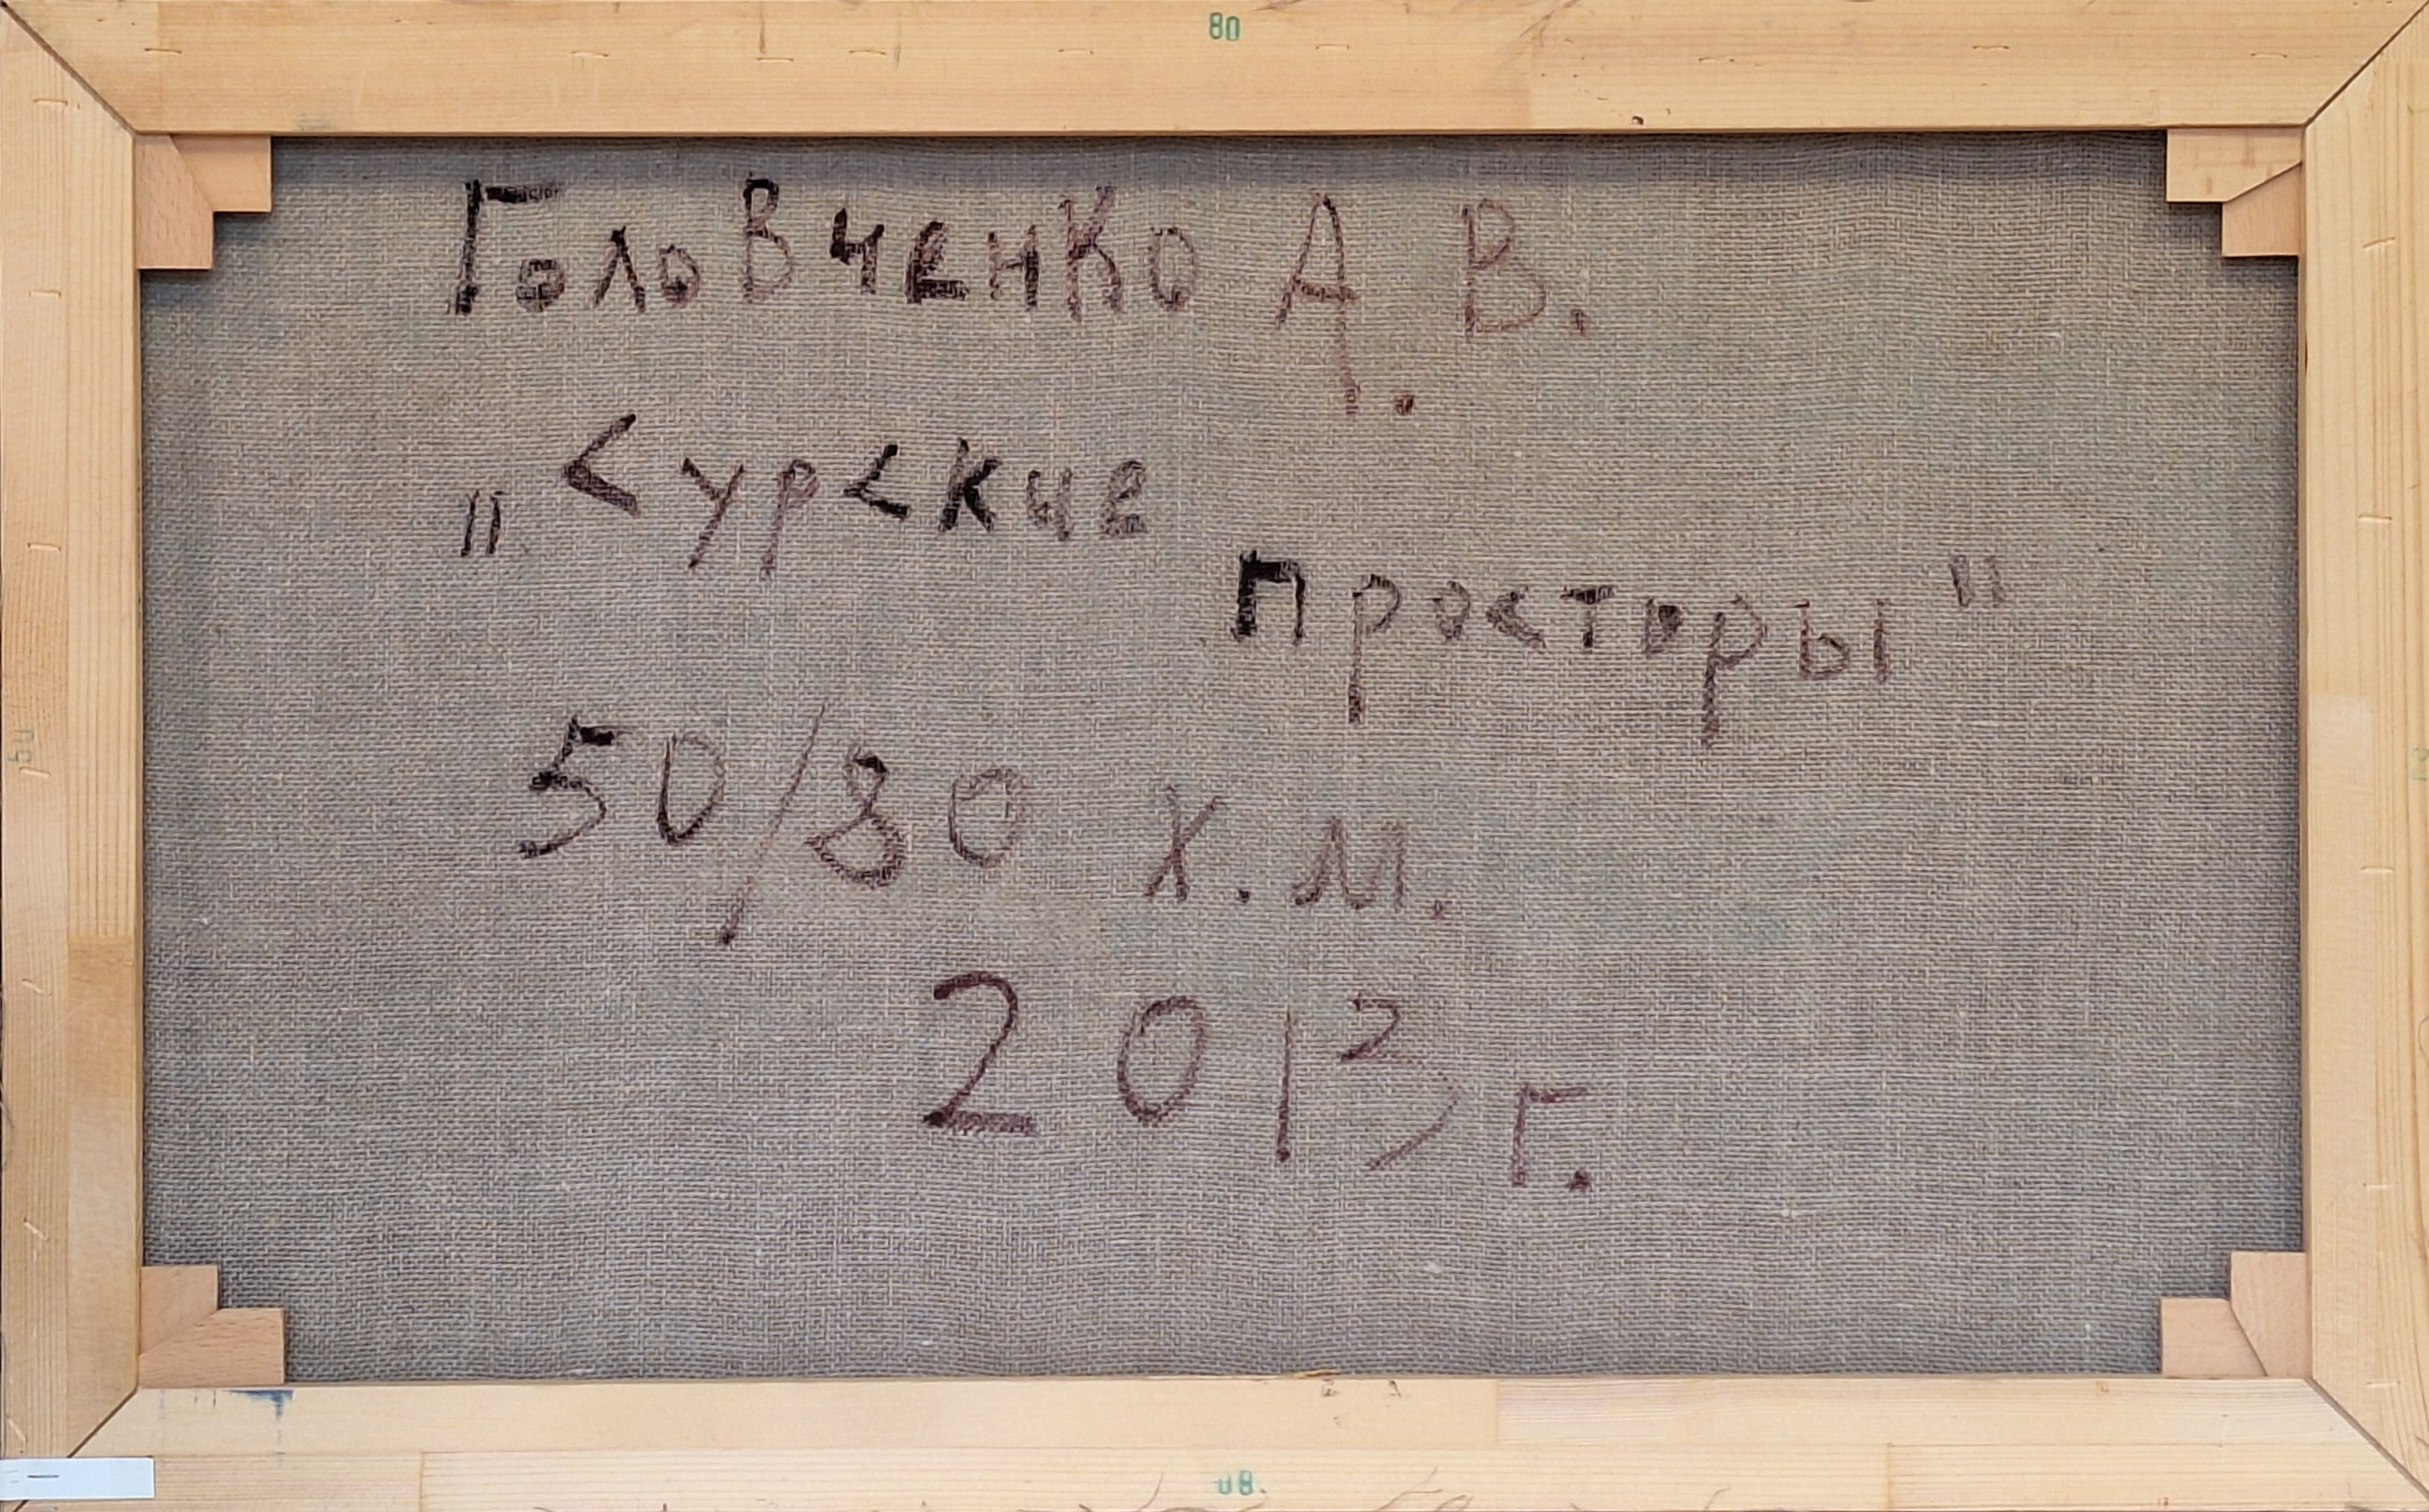 80
Головченко А. В.
„Сурские
просторы"
50/80 х.м.
2013 г.
50
80.